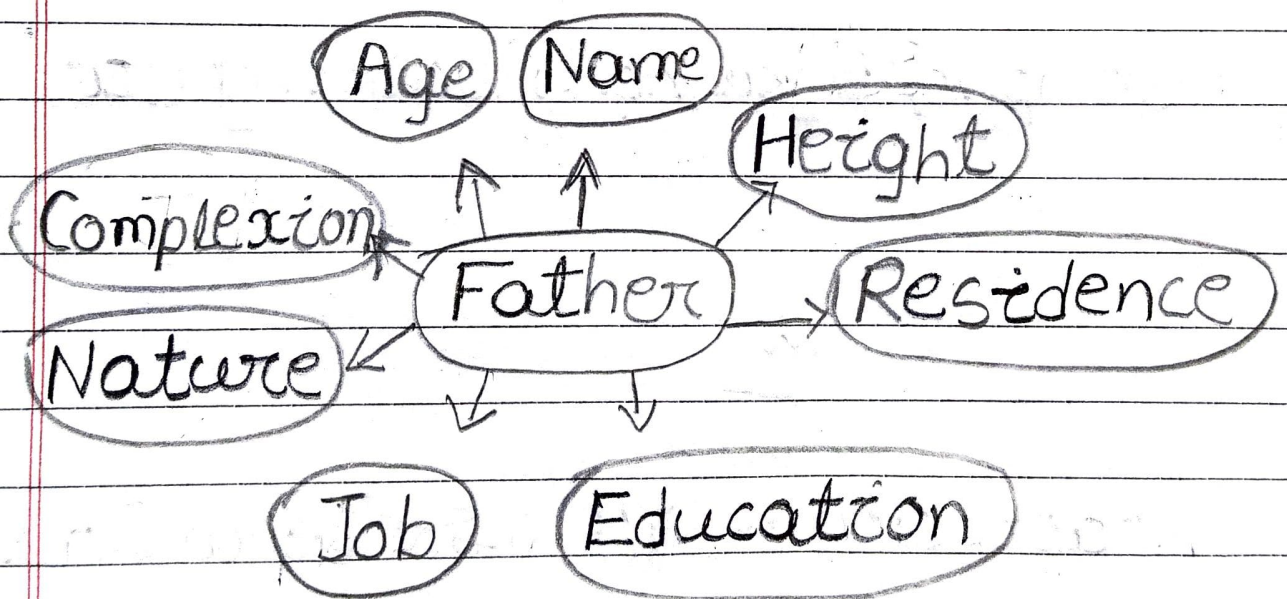 Age Name
Height
Complexion
Father Residence
Nature
Job Education